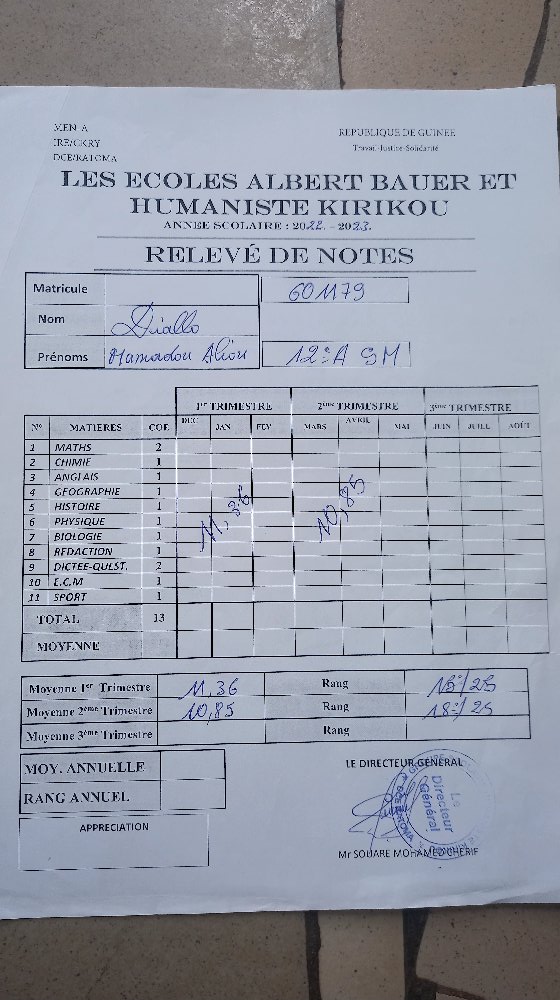 MEN-A
IRE/CKRY
DCE/RATOMA
REPUBLIQUE DE GUINEE
Travail-Justice-Solidarité
LES ECOLES ALBERT BAUER ET
HUMANISTE KIRIKOU
ANNEE SCOLAIRE : 2022. - 2023.
RELEVÉ DE NOTES
Matricule 601179
Nom Diallo
Prénoms Mamadou Aliou 12e A SM
1er TRIMESTRE 2ème TRIMESTRE 3ème TRIMESTRE
N° MATIERES COE DEC JAN FEV MARS AVRIL MAI JUIN JUILL AOÛT
1 MATHS 2
2 CHIMIE 1
3 ANGLAIS 1
4 GEOGRAPHIE 1
5 HISTOIRE 1
6 PHYSIQUE 1
7 BIOLOGIE 1
8 REDACTION 1
9 DICTEE-QUEST. 2
10 E.C.M 1
11 SPORT 1
11,36 10,85
TOTAL 13
MOYENNE
Moyenne 1er Trimestre 11,36 Rang 15e/25
Moyenne 2ème Trimestre 10,85 Rang 18e/25
Moyenne 3ème Trimestre Rang
MOY. ANNUELLE
RANG ANNUEL
APPRECIATION
LE DIRECTEUR GENERAL
Le
Directeur
Général
DCE RATOMA
Mr SOUARE MOHAMED CHERIF